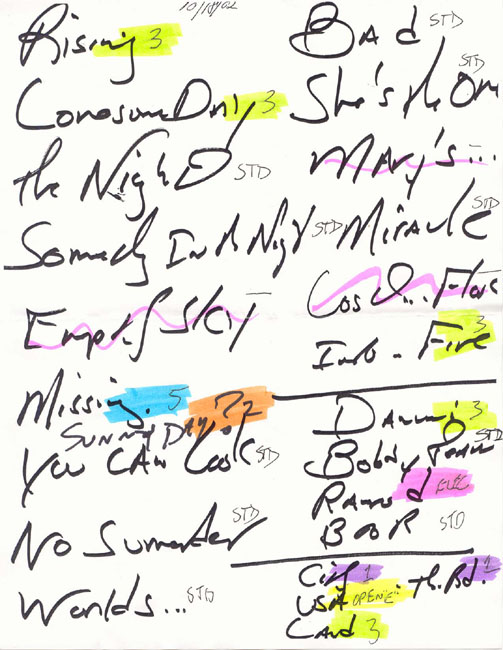 10/18/02
Rising 3
Lonesome Day 3
the Night STD
Somedy In th Night STD
Empty Sky
Missing. 5 ?2
SUNNY DAY
You CAN Look STD
No Surrender STD
Worlds... STD
BAd STD
She's the One STD
MARy's...
Miracle STD
Into - Fire 3
Dancing 3
Bobby Jean STD
Ramrod ELEC
BOOR STD
City 1
USA OPEN E
th. Pd. 1
Land 3